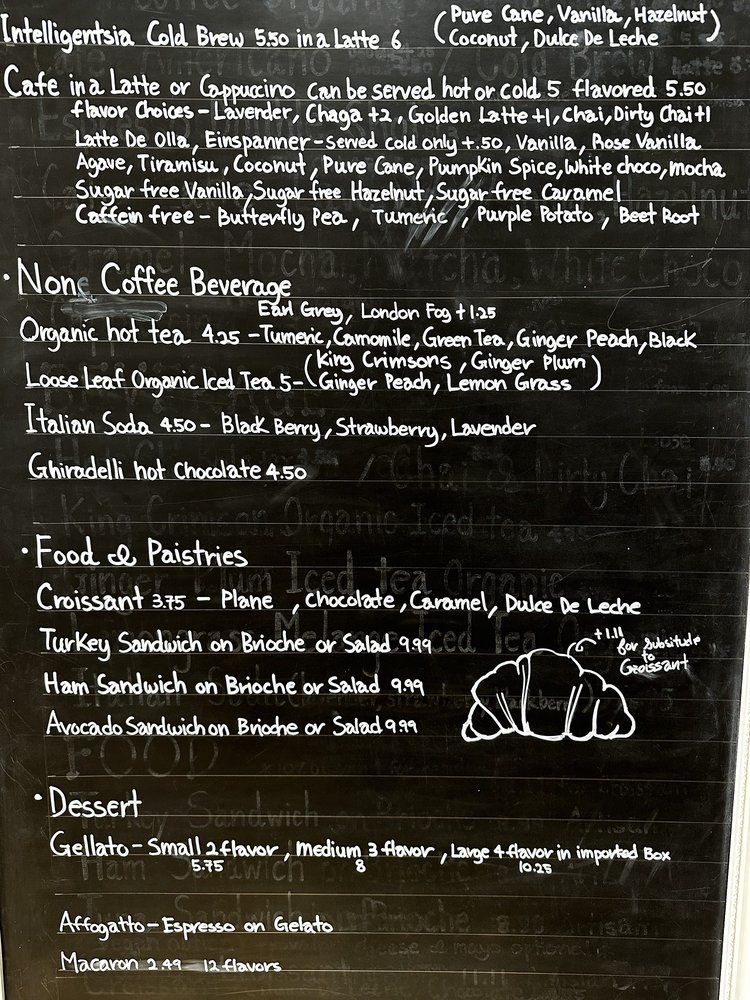 Intelligentsia Cold Brew 5.50 in a Latte 6 (Pure Cane, Vanilla, Hazelnut
Coconut, Dulce De Leche)
Cafe in a Latte or Cappuccino can be served hot or cold 5 flavored 5.50
flavor Choices - Lavender, Chaga +2, Golden Latte +1, Chai, Dirty Chai +1
Latte De Olla, Einspanner - served cold only +.50, Vanilla, Rose Vanilla
Agave, Tiramisu, Coconut, Pure Cane, Pumpkin Spice, White choco, mocha
Sugar free Vanilla, Sugar free Hazelnut, Sugar free Caramel
Caffein free - Butterfly Pea, Tumeric, Purple Potato, Beet Root
· None Coffee Beverage
Earl Grey, London Fog +1.25
Organic hot tea 4.25 - Tumeric, Camomile, Green Tea, Ginger Peach, Black
(King Crimsons, Ginger Plum
Loose Leaf Organic Iced Tea 5 - Ginger Peach, Lemon Grass)
Italian Soda 4.50 - Black Berry, Strawberry, Lavender
Ghiradelli hot Chocolate 4.50
· Food & Paistries
Croissant 3.75 - Plane, chocolate, Caramel, Dulce De Leche
Turkey Sandwich on Brioche or Salad 9.99
+1.11 for Subsitude
to
Croissant
Ham Sandwich on Brioche or Salad 9.99
Avocado Sandwich on Brioche or Salad 9.99
· Dessert
Gellato - Small 2 flavor, medium 3 flavor, Large 4 flavor in imported Box
5.75 8 10.25
Affogatto - Espresso on Gelato
Macaron 2.49 12 flavors